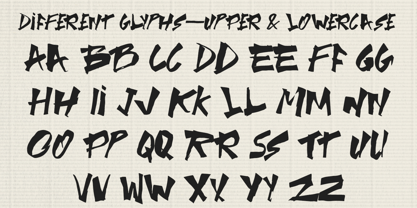 DiFFERENT GLYPHS—UPPER & LOWERCASE
AA BB CC DD EE FF GG
HH Ii JJ KK LL MM NN
OO PP QQ RR SS TT UU
VV WW XX YY ZZ